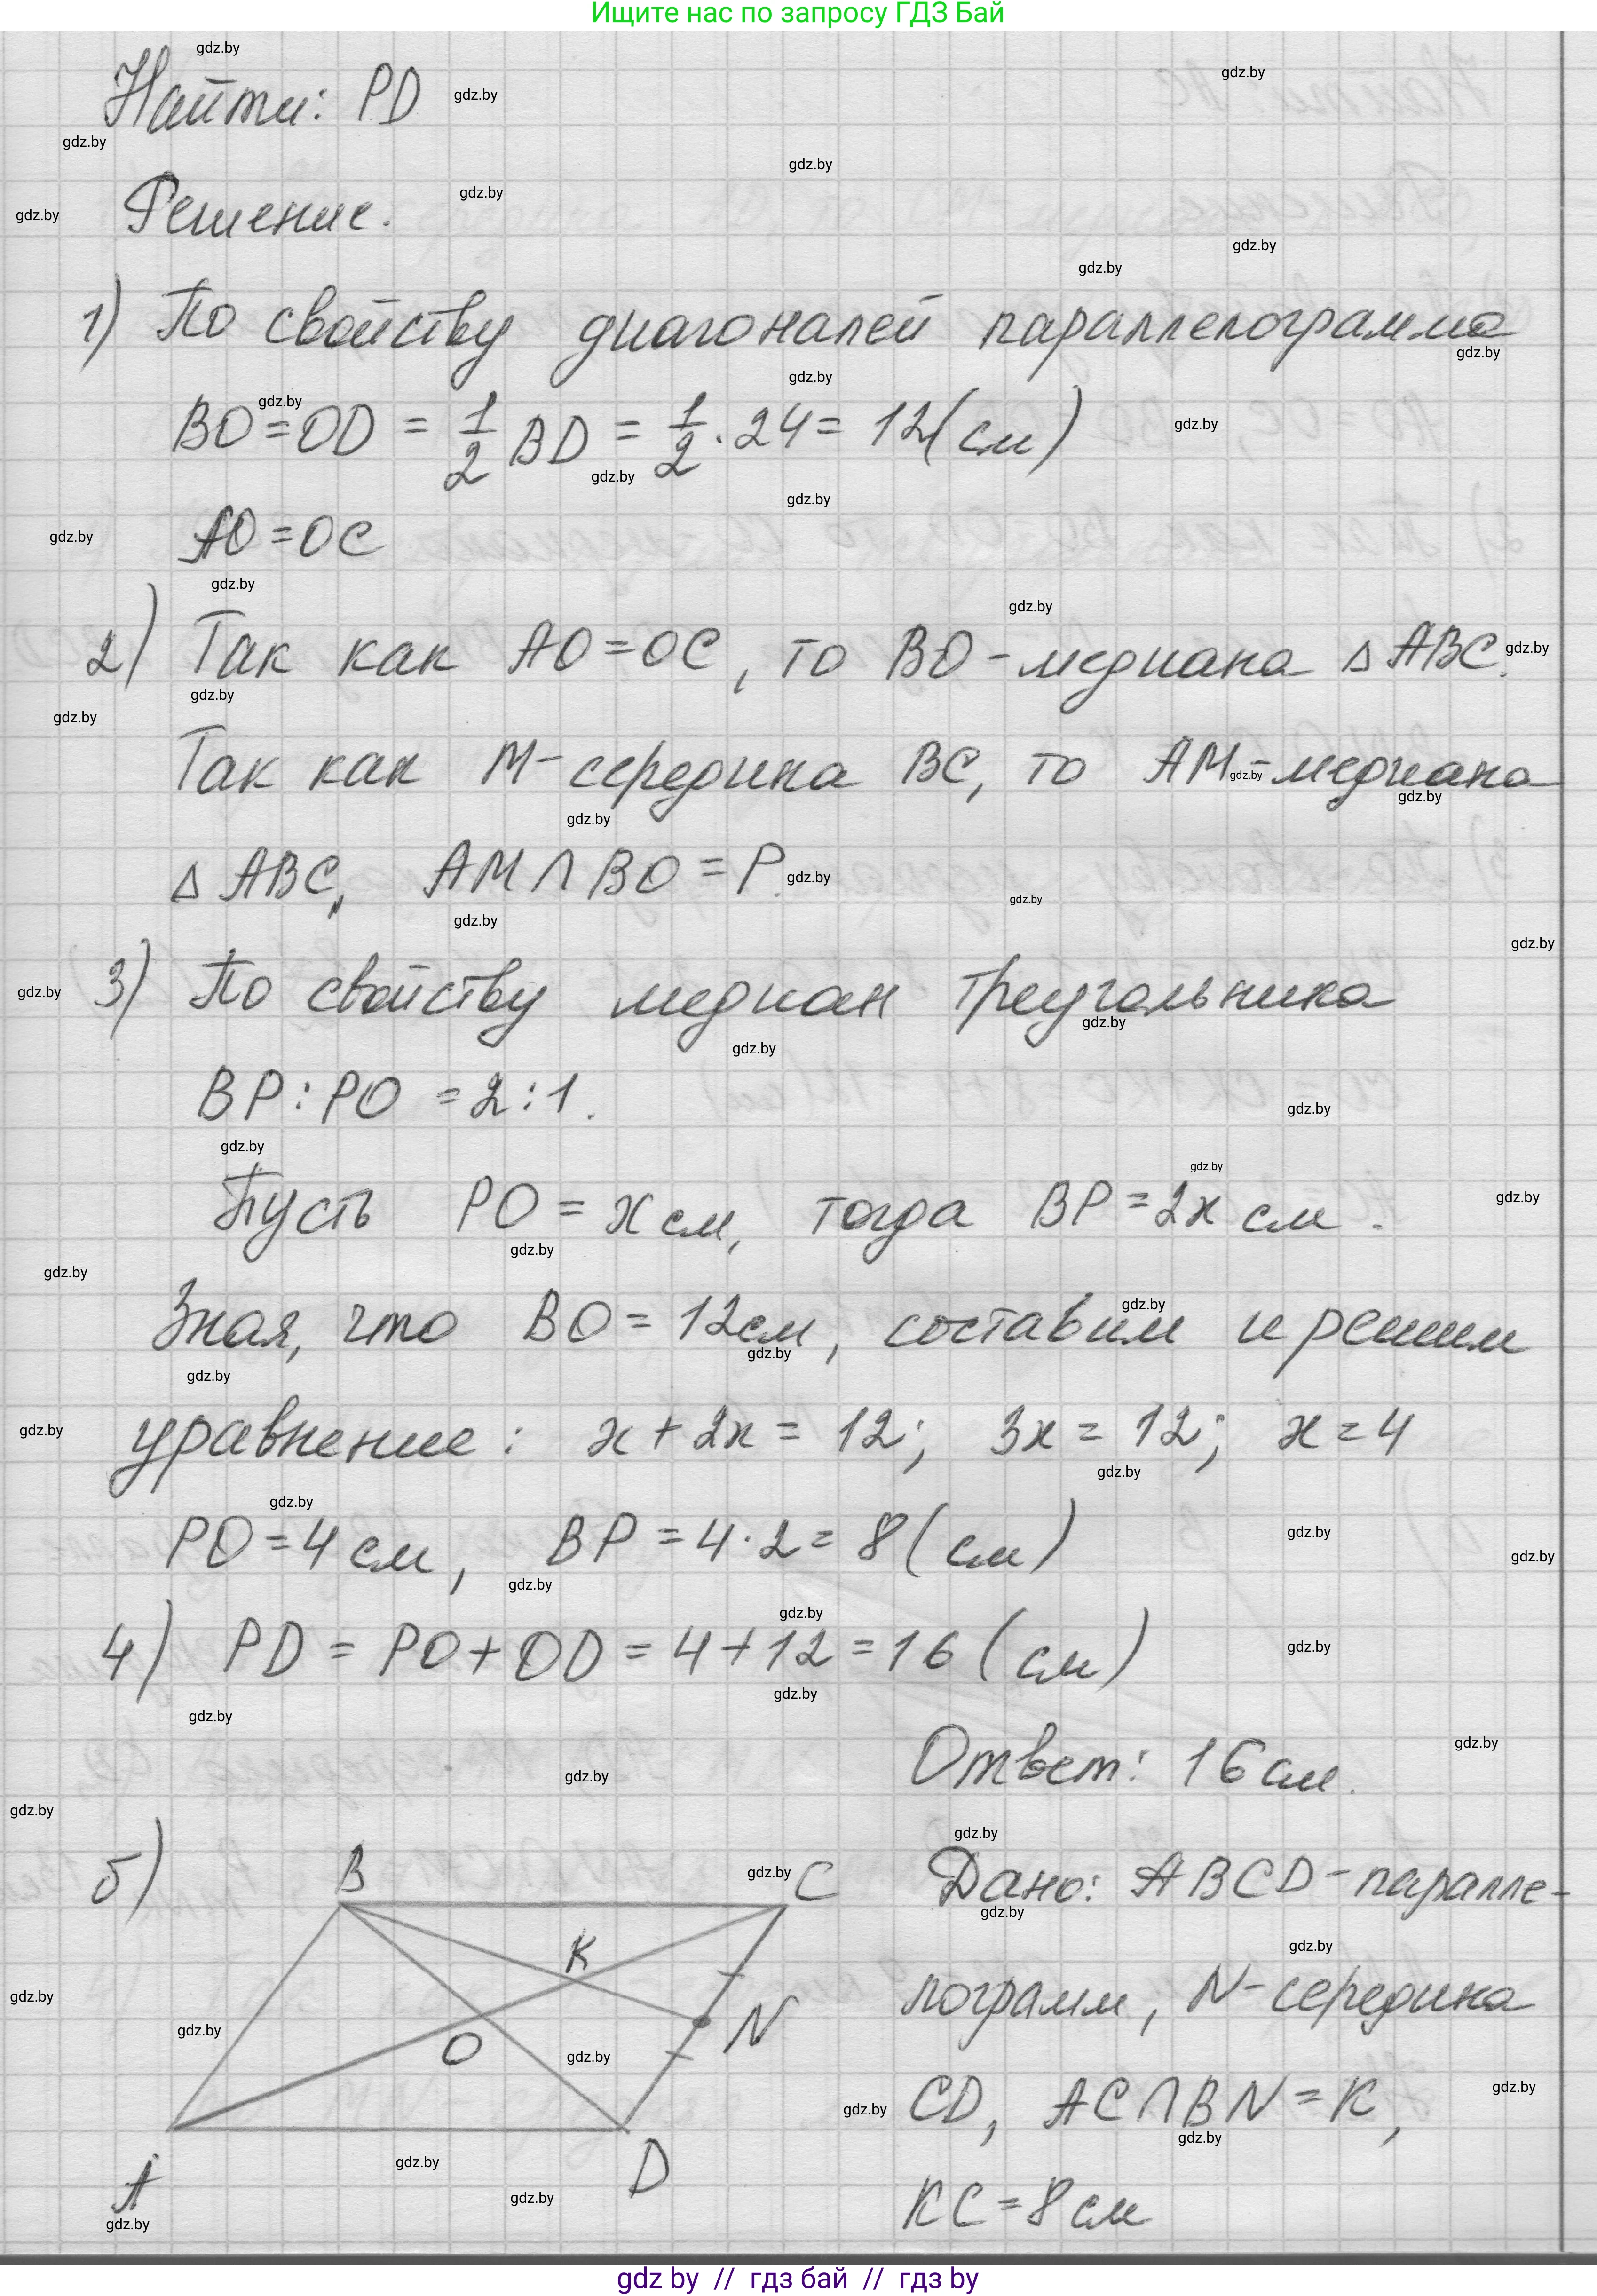 Ищите нас по запросу ГДЗ Бай
Найти: PD
Решение.
1) По свойству диагоналей параллелограмма
BO=OD = 1/2 BD = 1/2 · 24 = 12(см)
AO=OC
2) Так как AO=OC, то BO-медиана △ABC.
Так как M-середина BC, то AM-медиана
△ABC, AM∩BO=P.
3) По свойству медиан треугольника
BP:PO=2:1.
Пусть PO=x см, тогда BP=2x см.
Зная, что BO=12см, составим и решим
уравнение: x+2x=12; 3x=12; x=4
PO=4см, BP=4·2=8(см)
4) PD=PO+OD=4+12=16(см)
Ответ: 16см.
б) B C Дано: ABCD-паралле-
K
лограмм, N-середина
O N
CD, AC∩BN=K,
A D
KC=8см
gdz.by
gdz by // гдз бай // гдз by